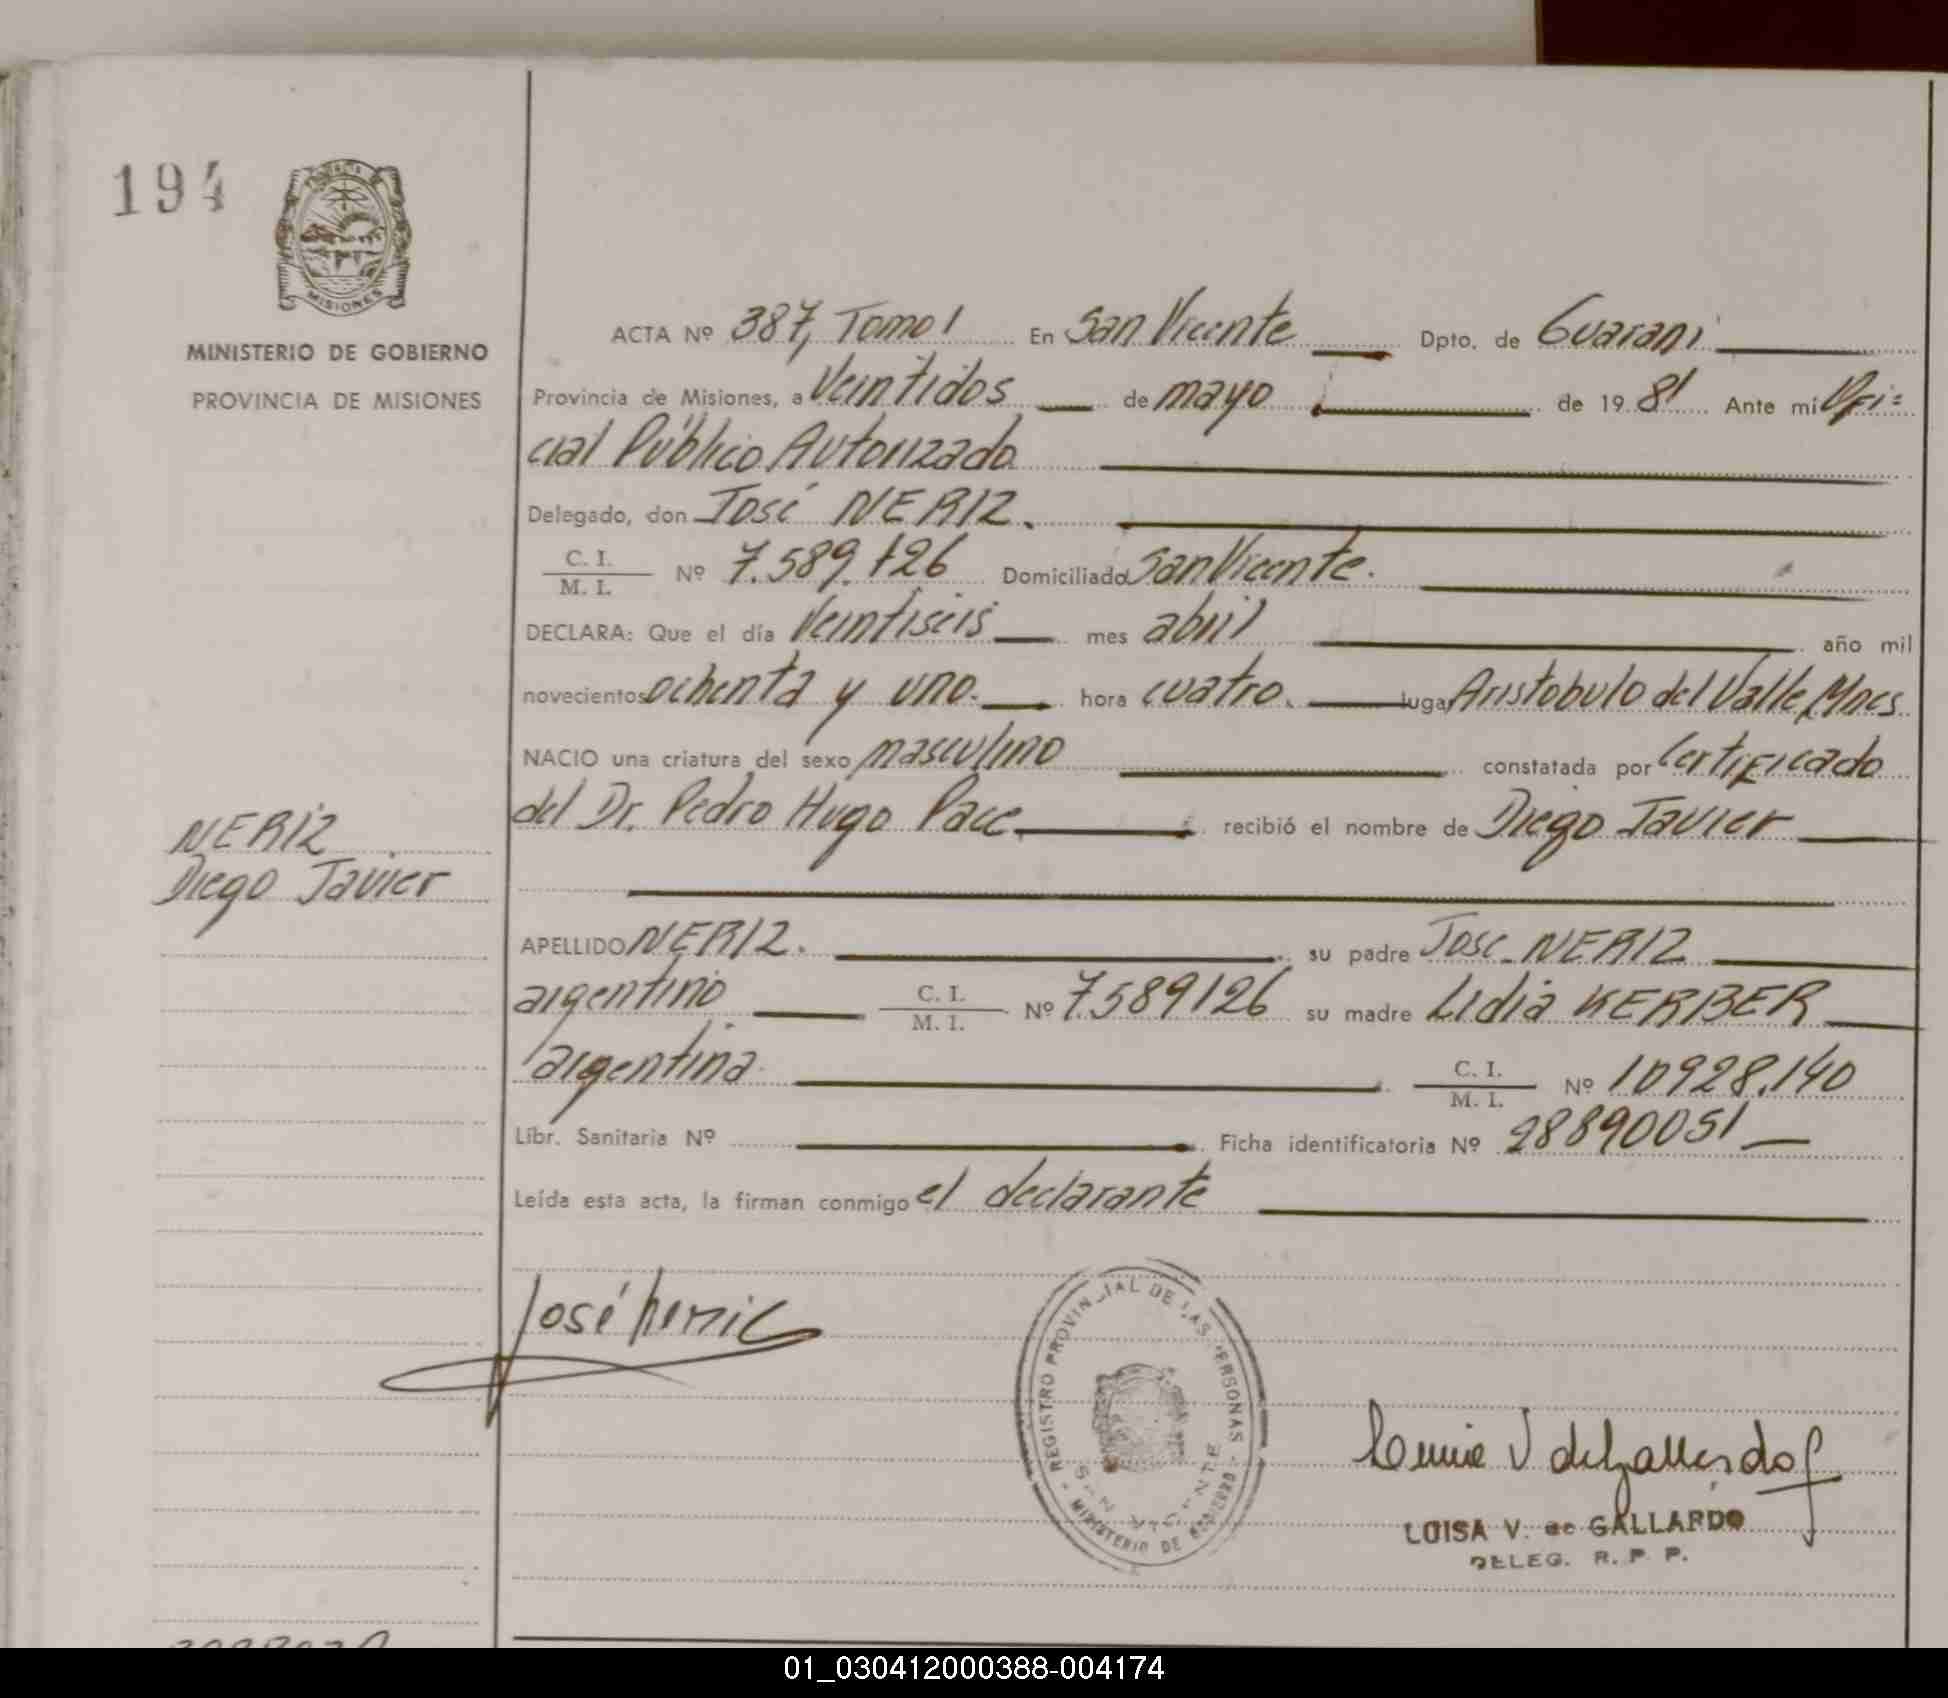 194
MISIONES
MINISTERIO DE GOBIERNO
PROVINCIA DE MISIONES
ACTA Nº 387, Tomo 1 En San Vicente Dpto. de Guarani
Provincia de Misiones, a Veintidos de mayo de 1981 Ante mi Ofi=
cial Público Autorizado
Delegado, don José NERIZ.
C. I.
M. I. Nº 7.589.126 Domiciliado San Vicente.
DECLARA: Que el día Veintiseis mes abril año mil
novecientos ochenta y uno. hora cuatro. lugar Aristobulo del Valle, Mnes
NACIO una criatura del sexo masculino constatada por Certificado
del Dr. Pedro Hugo Pace recibió el nombre de Diego Javier
NERIZ
Diego Javier
APELLIDO NERIZ. su padre Jose NERIZ
argentino C. I.
M. I. Nº 7.589126 su madre Lidia KERBER
argentina C. I.
M. I. Nº 10928.140
Libr. Sanitaria Nº Ficha identificatoria Nº 28890051
Leída esta acta, la firman conmigo el declarante
José neriz
REGISTRO PROVINCIAL DE LAS PERSONAS
SAN VICENTE
MINISTERIO DE GOBIERNO
V de Gallardo
LUISA V. de GALLARDO
DELEG. R. P. P.
01_030412000388-004174